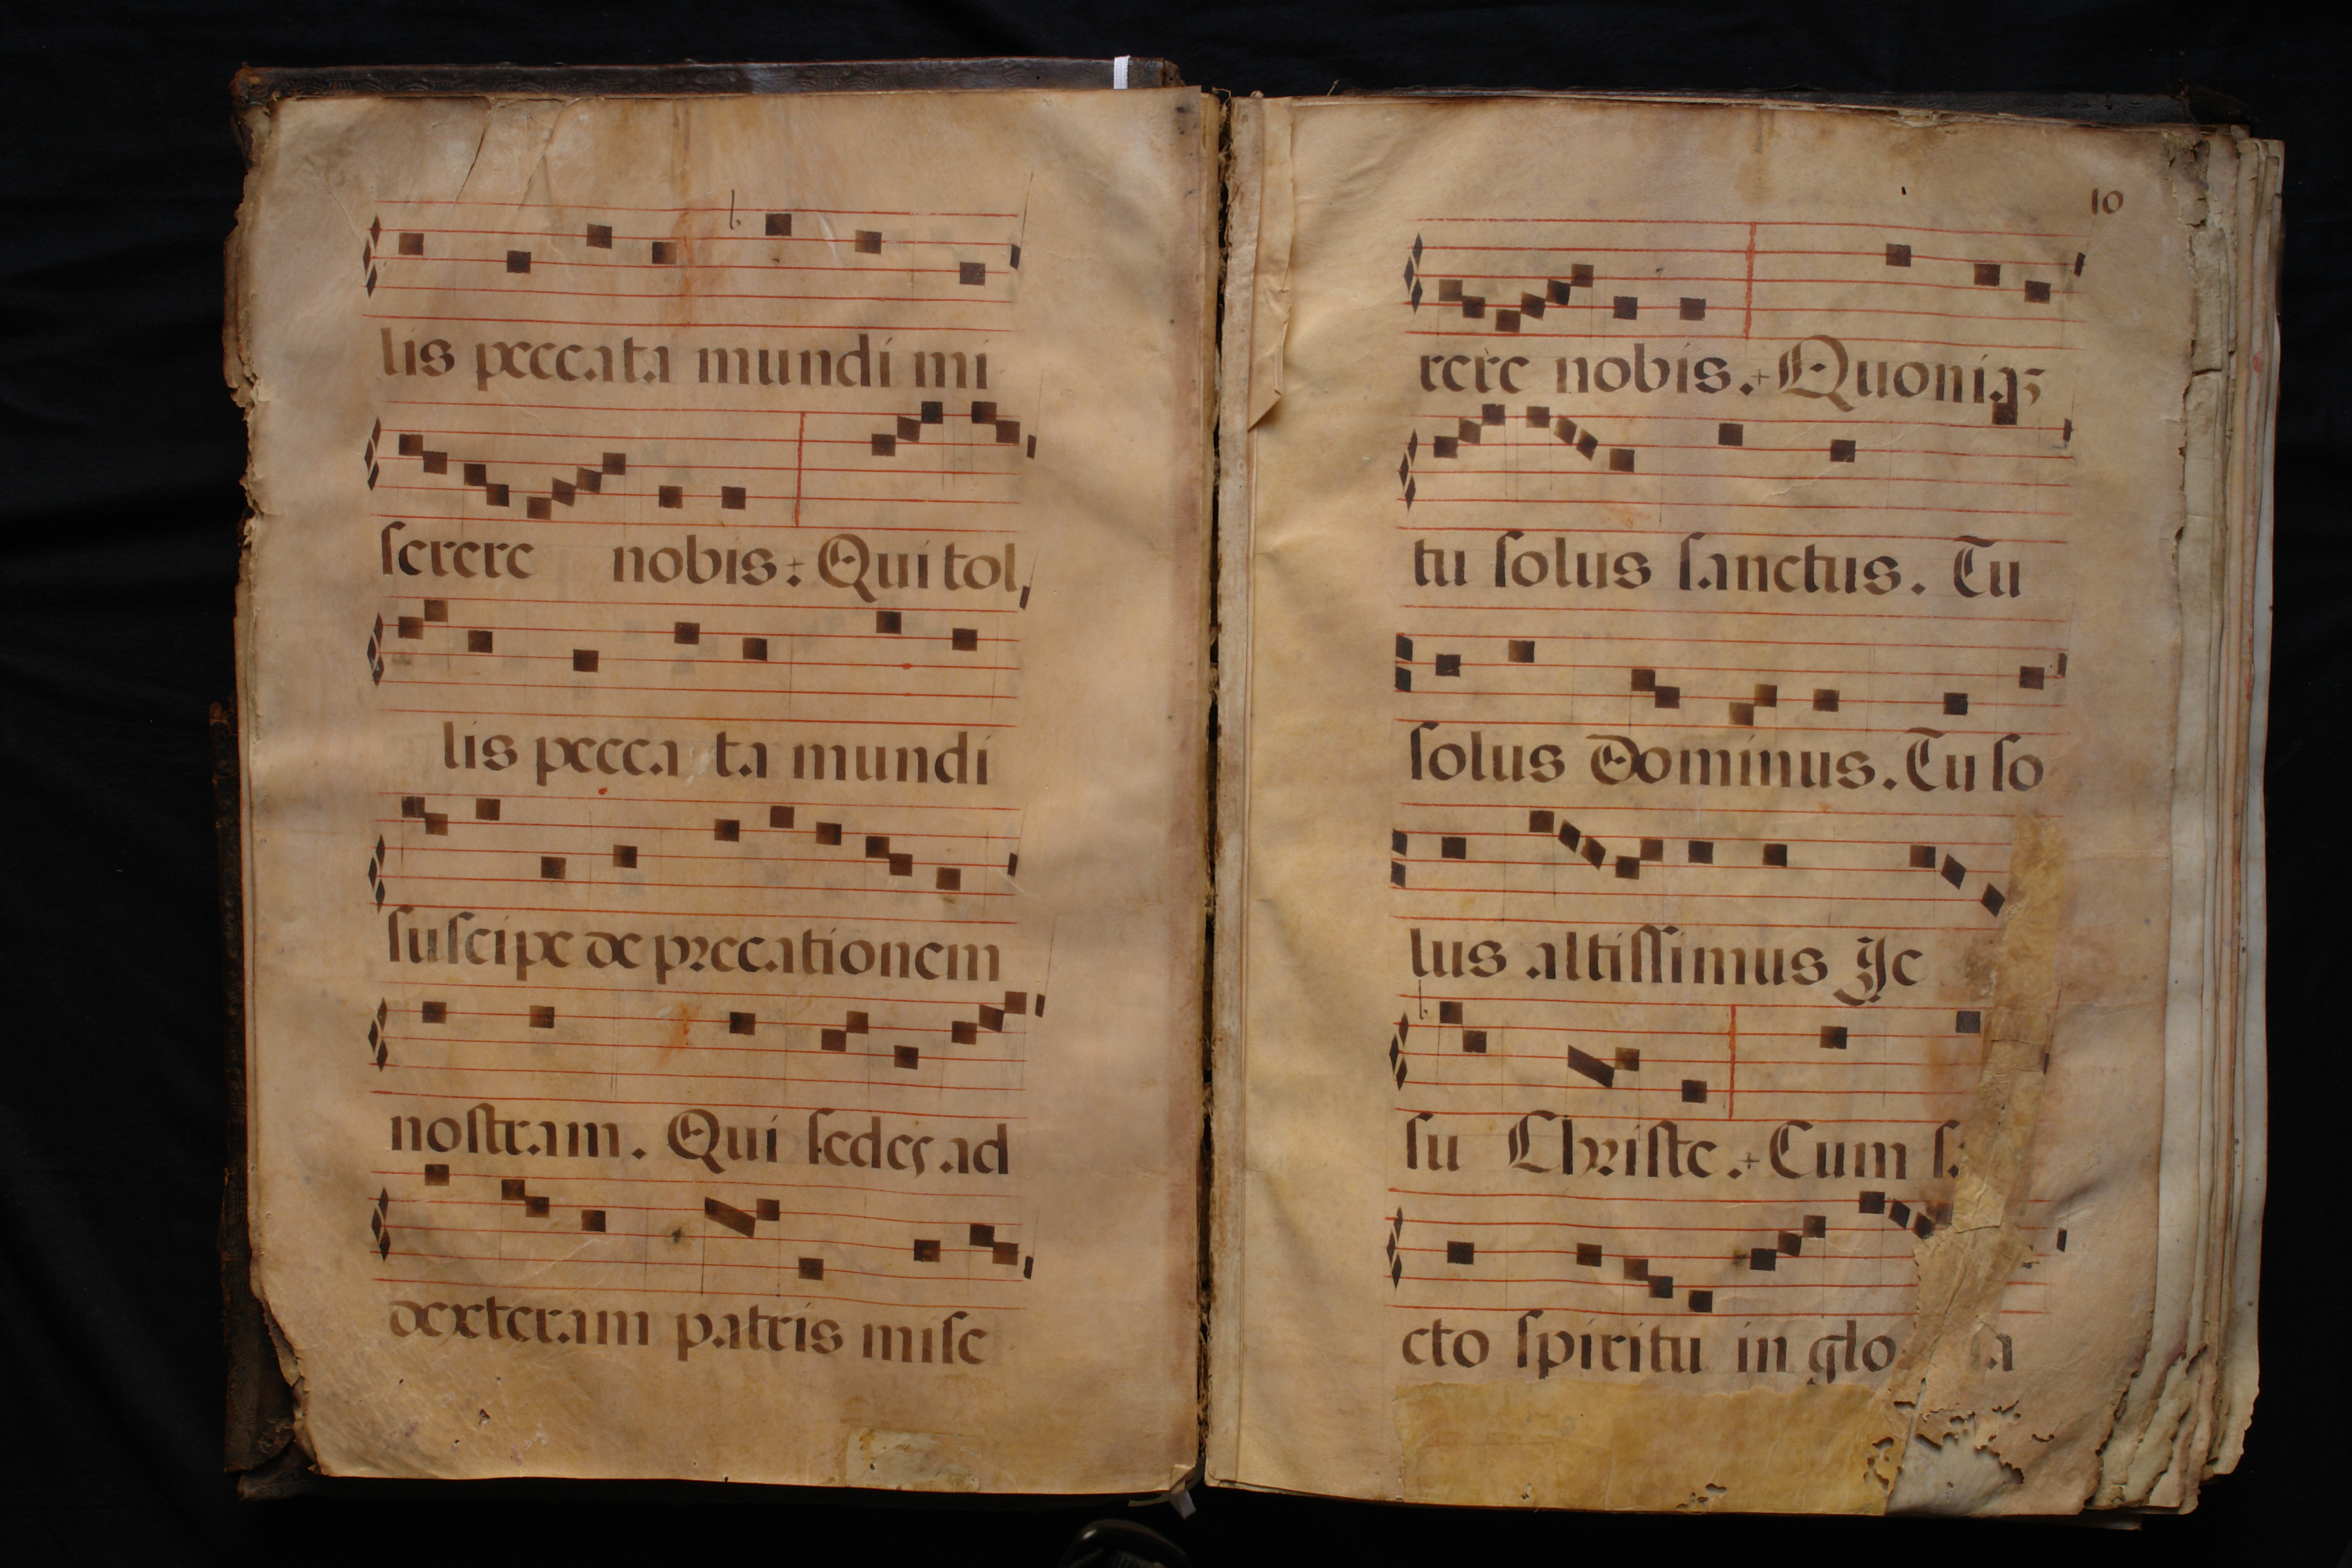 lis peccata mundi mi
ſerere nobis. + Qui tol
lis pecca ta mundi
ſuſcipe de precationem
noſtram. Qui ſedes ad
dexteram patris miſe
10
rere nobis. + Quoniaꝫ
tu ſolus ſanctus. Tu
ſolus Dominus. Tu ſo
lus altiſſimus Je
ſu Chriſte. + Cum
cto ſpiritu in glo